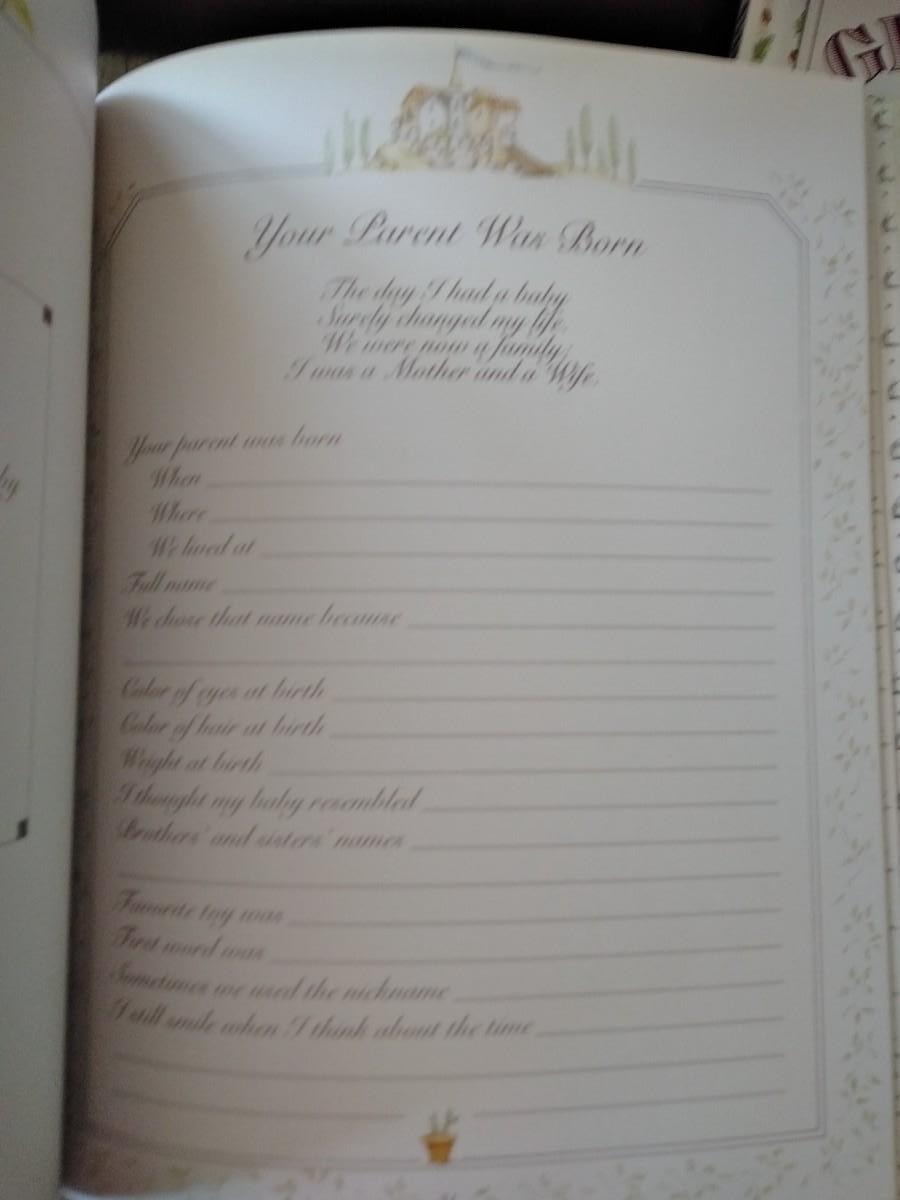 Your Parent Was Born
The day I had a baby
Surely changed my life.
We were now a family;
I was a Mother and a Wife.
Your parent was born
When
Where
We lived at
Full name
We chose that name because
Color of eyes at birth
Color of hair at birth
Weight at birth
I thought my baby resembled
Brothers' and sisters' names
Favorite toy was
First word was
Sometimes we used the nickname
I still smile when I think about the time